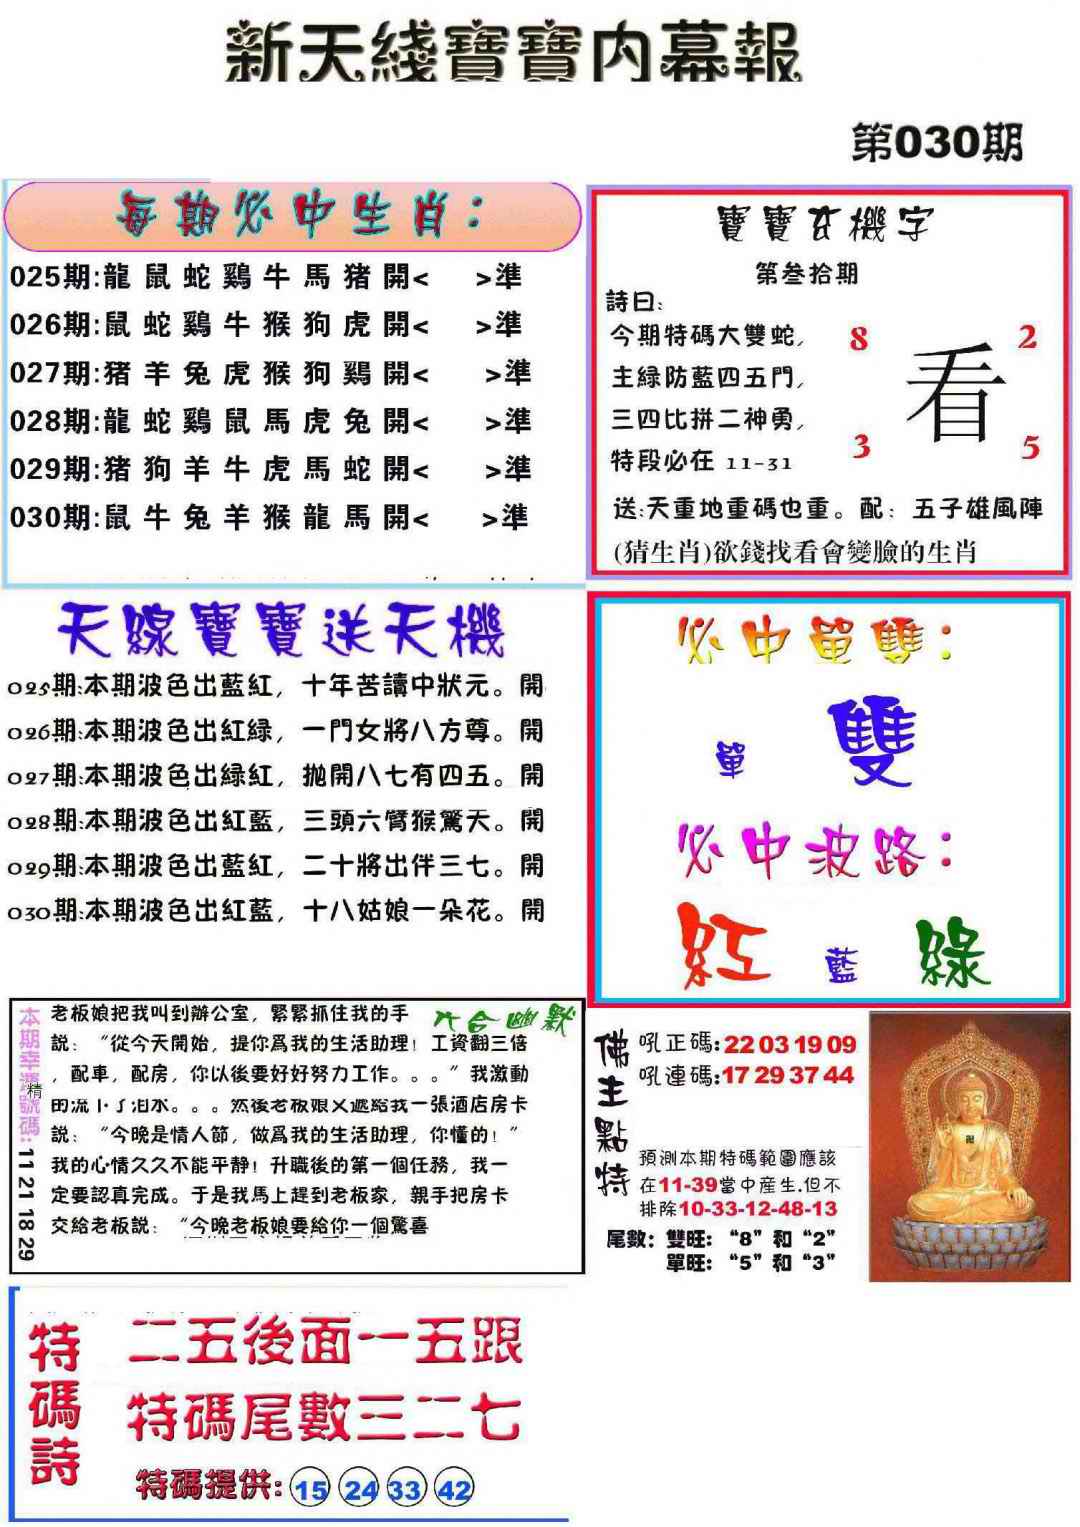 新天綫寶寶内幕報
第030期
每期必中生肖：
025期:龍鼠蛇鷄牛馬猪開< >準
026期:鼠蛇鷄牛猴狗虎開< >準
027期:猪羊兔虎猴狗鷄開< >準
028期:龍蛇鷄鼠馬虎兔開< >準
029期:猪狗羊牛虎馬蛇開< >準
030期:鼠牛兔羊猴龍馬開< >準
寶寶玄機字
第叁拾期
詩曰:
今期特碼大雙蛇,
主緑防藍四五門,
三四比拼二神勇,
特段必在 11-31
8 2
看
3 5
送:天重地重碼也重。配：五子雄風陣
(猜生肖)欲錢找看會變臉的生肖
天線寶寶送天機
025期:本期波色出藍紅，十年苦讀中狀元。開
026期:本期波色出紅緑，一門女將八方尊。開
027期:本期波色出緑紅，抛開八七有四五。開
028期:本期波色出紅藍，三頭六臂猴驚天。開
029期:本期波色出藍紅，二十將出伴三七。開
030期:本期波色出紅藍，十八姑娘一朵花。開
必中單雙：
單 雙
必中波路：
紅 藍 綠
本期幸運號碼:11 21 18 29
精
六合幽默
老板娘把我叫到辦公室，緊緊抓住我的手
説：“從今天開始，提你爲我的生活助理！工資翻三倍
，配車，配房，你以後要好好努力工作。。。”我激動
的流下了泪水。。。然後老板娘又遞給我一張酒店房卡
説：“今晚是情人節，做爲我的生活助理，你懂的！”
我的心情久久不能平静！升職後的第一個任務，我一
定要認真完成。于是我馬上趕到老板家，親手把房卡
交給老板説：“今晚老板娘要給你一個驚喜
佛主點特
吼正碼:22 03 19 09
吼連碼:17 29 37 44
預測本期特碼範圍應該
在11-39當中産生.但不
排除10-33-12-48-13
尾數：雙旺：“8”和“2”
單旺：“5”和“3”
特碼詩
二五後面一五跟
特碼尾數三二七
特碼提供: 15 24 33 42